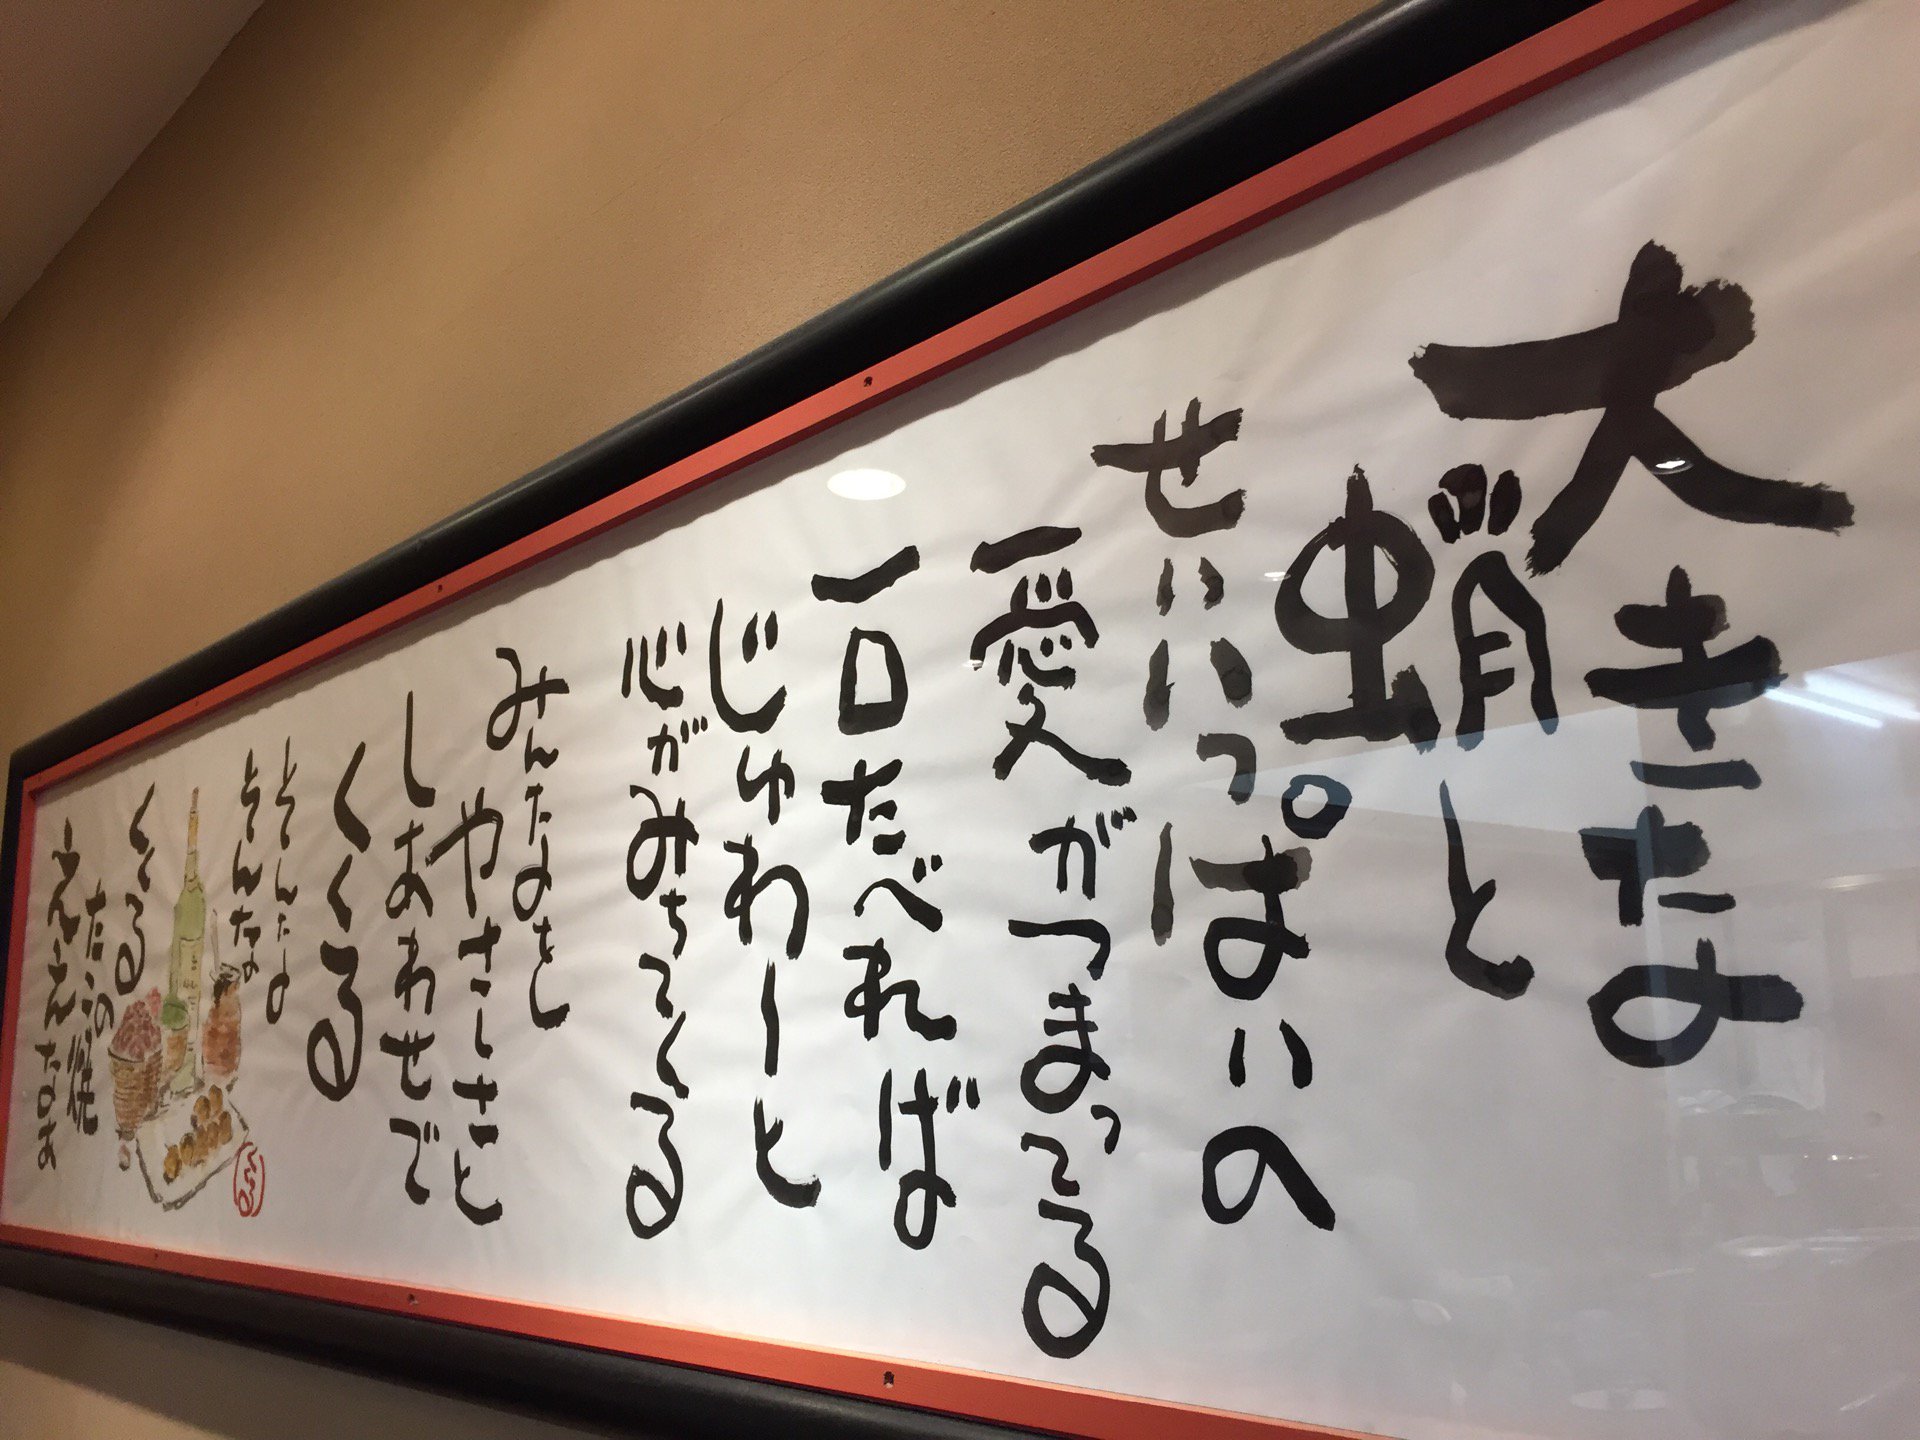 大きな
蛸と
せいいっぱいの
愛がつまってる
一口たべれば
じゅわーと
心がみちてくる
みんなを
やさしさと
しあわせで
くくる
そんな
そんな
くくる
くくる